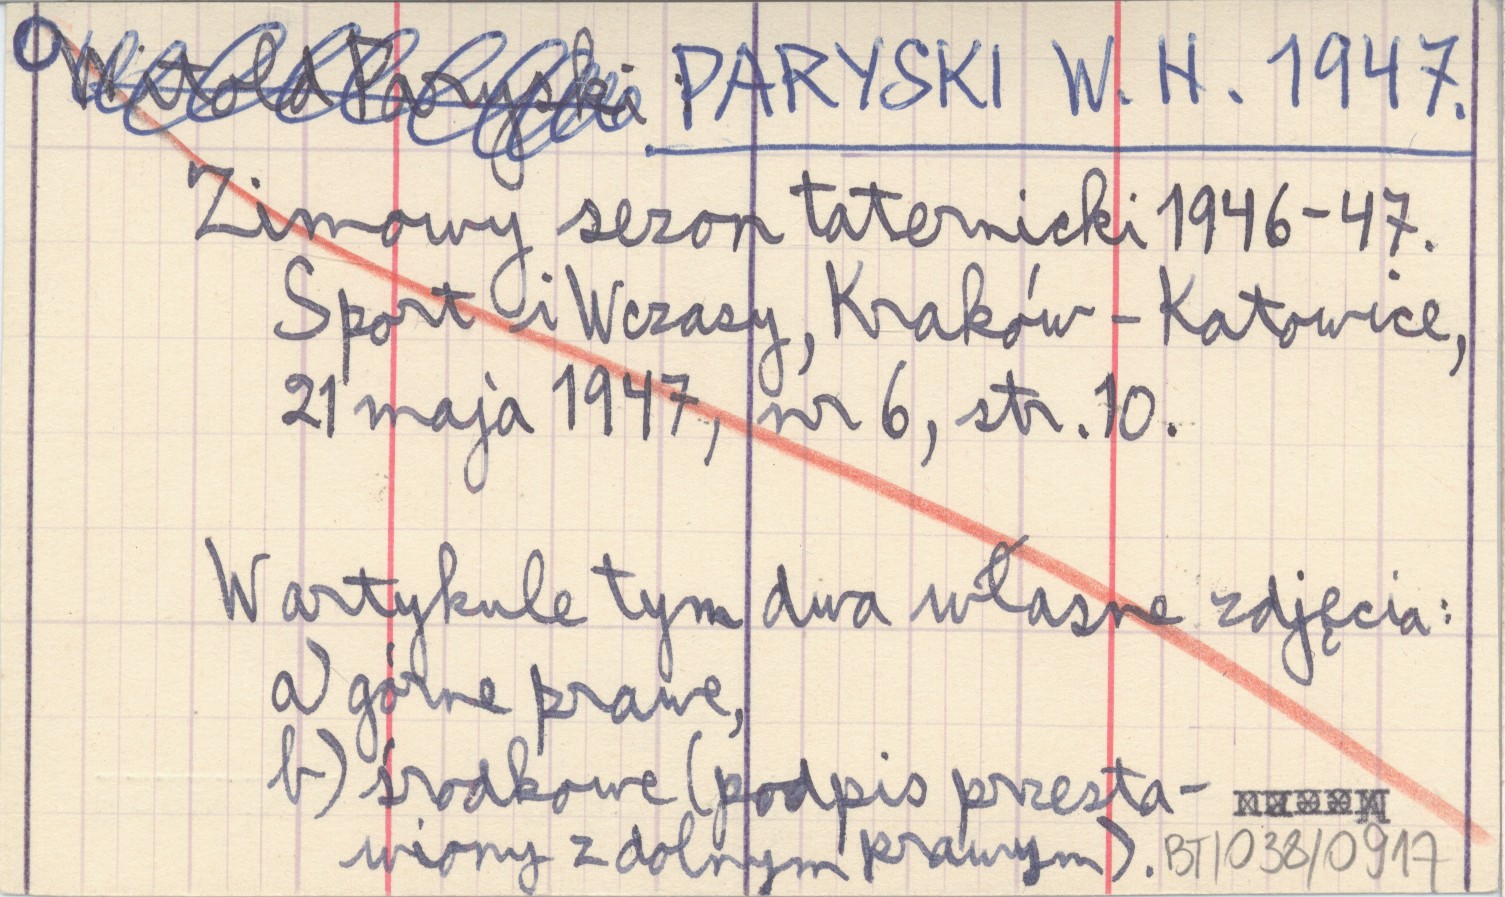 Witold Paryski. PARYSKI W. H. 1947.
Zimowy sezon taternicki 1946-47.
Sport i Wczasy, Kraków - Katowice,
21 maja 1947, nr 6, str. 10.
W artykule tym dwa własne zdjęcia:
a) górne prawe,
b) środkowe (podpis przesta-
wiony z dolnym prawym).
BT/038/0917